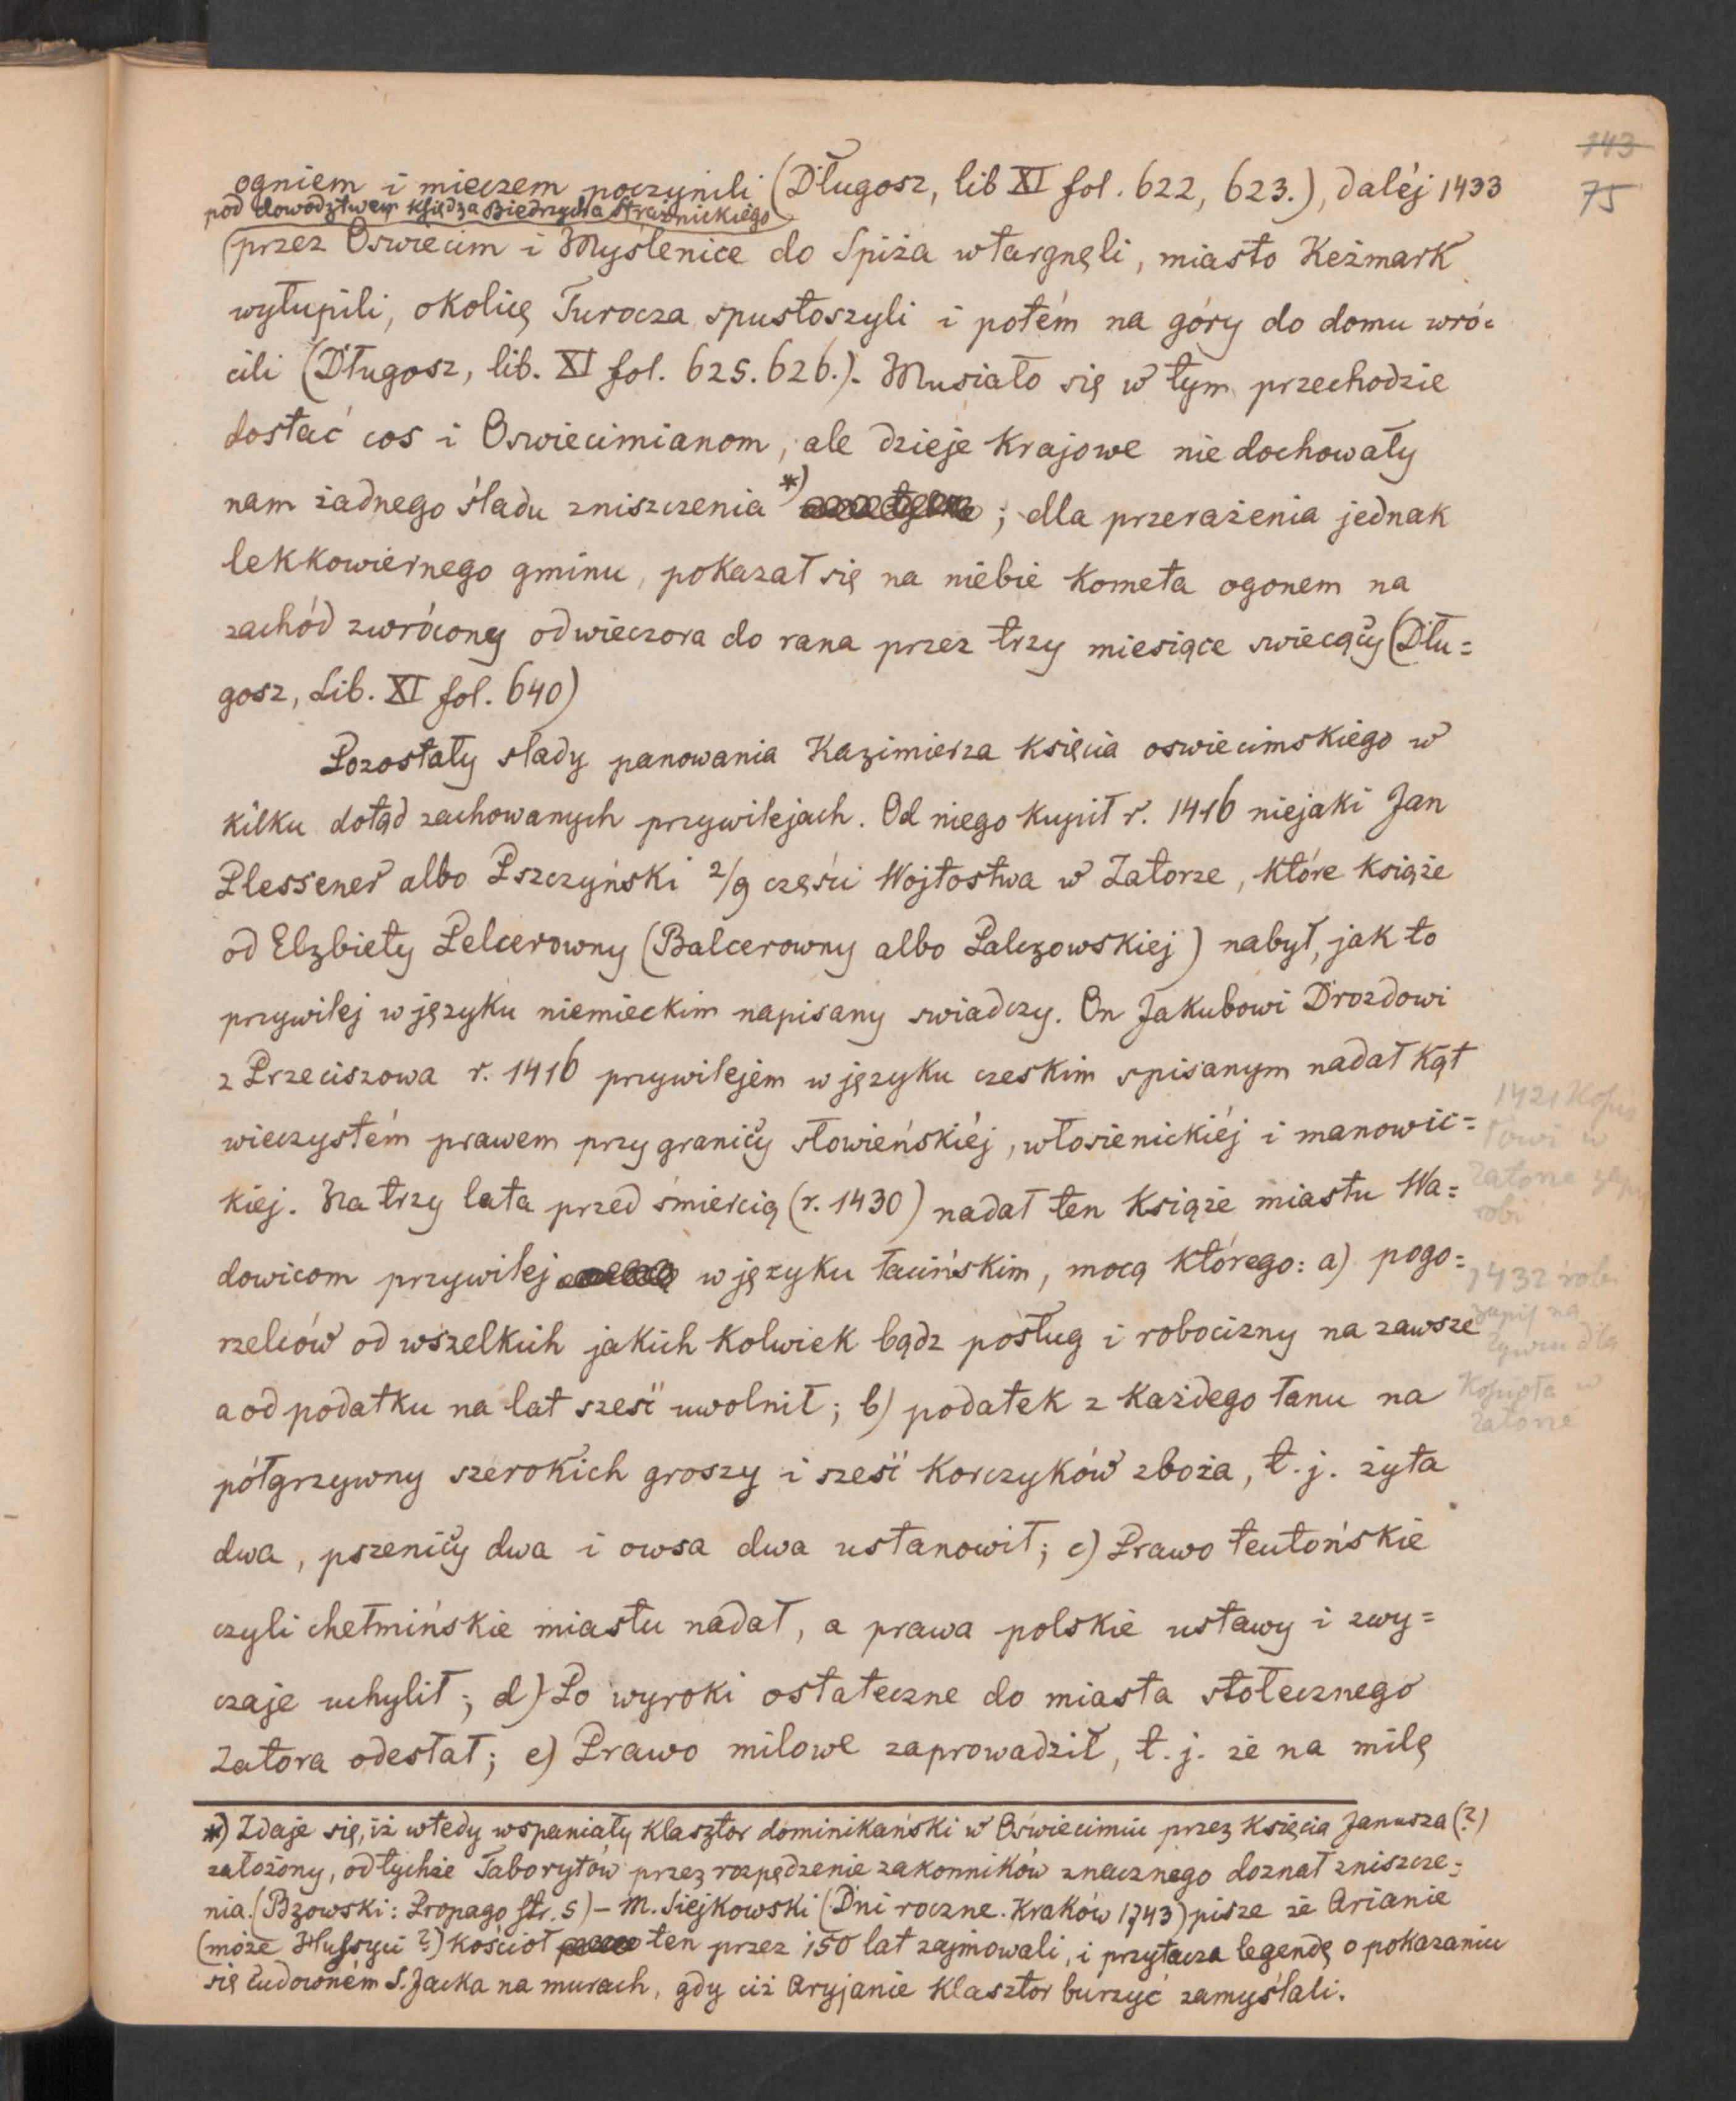 143
75
ogniem i mieczem poczynili (Długosz, lib XI fol. 622, 623.), daléj 1433
pod dowodztwem Księdza Biedrzycha Strażnickiego
przez Oswiecim i Myślenice do Spiża wtargnęli, miasto Keżmark
wyłupili, okolicę Turocza spustoszyli i potém na góry do domu wró=
cili (Długosz, lib. XI fol. 625. 626.). Musiało się w tym przechodzie
dostać cos i Oswiecimianom, ale dzieje krajowe nie dochowały
nam żadnego śladu zniszczenia *) ; dla przerażenia jednak
lekkowiernego gminu, pokazał się na niebie kometa ogonem na
zachód zwrócony od wieczora do rana przez trzy miesiące swiecący (Dłu=
gosz, Lib. XI fol. 640)
Pozostały slady panowania Kazimierza księcia oswiecimskiego w
kilku dotąd zachowanych przywilejach. Od niego kupił r. 1416 niejaki Jan
Plessener albo Pszczyński 2/9 części Wojtostwa w Zatorze, które książe
od Elzbiety Pelcerowny (Balcerowny albo Palczowskiej) nabył, jak to
przywilej w języku niemieckim napisany swiadczy. On Jakubowi Drozdowi
z Przeciszowa r. 1416 przywilejem w języku czeskim spisanym nadał Kąt
wieczystém prawem przy granicy słowieńskiéj, włosienickiéj i manowic=
kiej. Na trzy lata przed śmiercią (r. 1430) nadał ten książe miastu Wa=
dowicom przywilej w języku łacińskim, mocą którego: a) pogo=
rzelców od wszelkich jakich kolwiek bądz posług i robocizny na zawsze
a od podatku na lat sześć uwolnił; b) podatek z każdego łanu na
półgrzywny szerokich groszy i sześć korczyków zboża, t. j. żyta
dwa, pszenicy dwa i owsa dwa ustanowił; c) Prawo teutońskie
czyli chełmińskie miastu nadał, a prawa polskie ustawy i zwy=
czaje uchylił; d) Po wyroki ostateczne do miasta stołecznego
Zatora odesłał; e) Prawo milowe zaprowadził, t. j. że na milę
1421 Kościo
łowi w
Zatorze
robi
1432 robi
zapis na
dla
Kościoła w
Zatorze
*) Zdaje się, iż wtedy wspaniały klasztor dominikański w Oświecimiu przez Księcia Janusza (?)
założony, od tychże Taborytów przez rozpędzenie zakonników znacznego doznał zniszcze=
nia. (Bzowski: Propago str. 5) – M. Siejkowski (Dni roczne. Kraków 1743) pisze że Arianie
(może Hussyci ?) kościoł ten przez 150 lat zajmowali, i przytacza legendę o pokazaniu
się cudowném S. Jacka na murach, gdy ciż Aryjanie klasztor burzyć zamyślali.